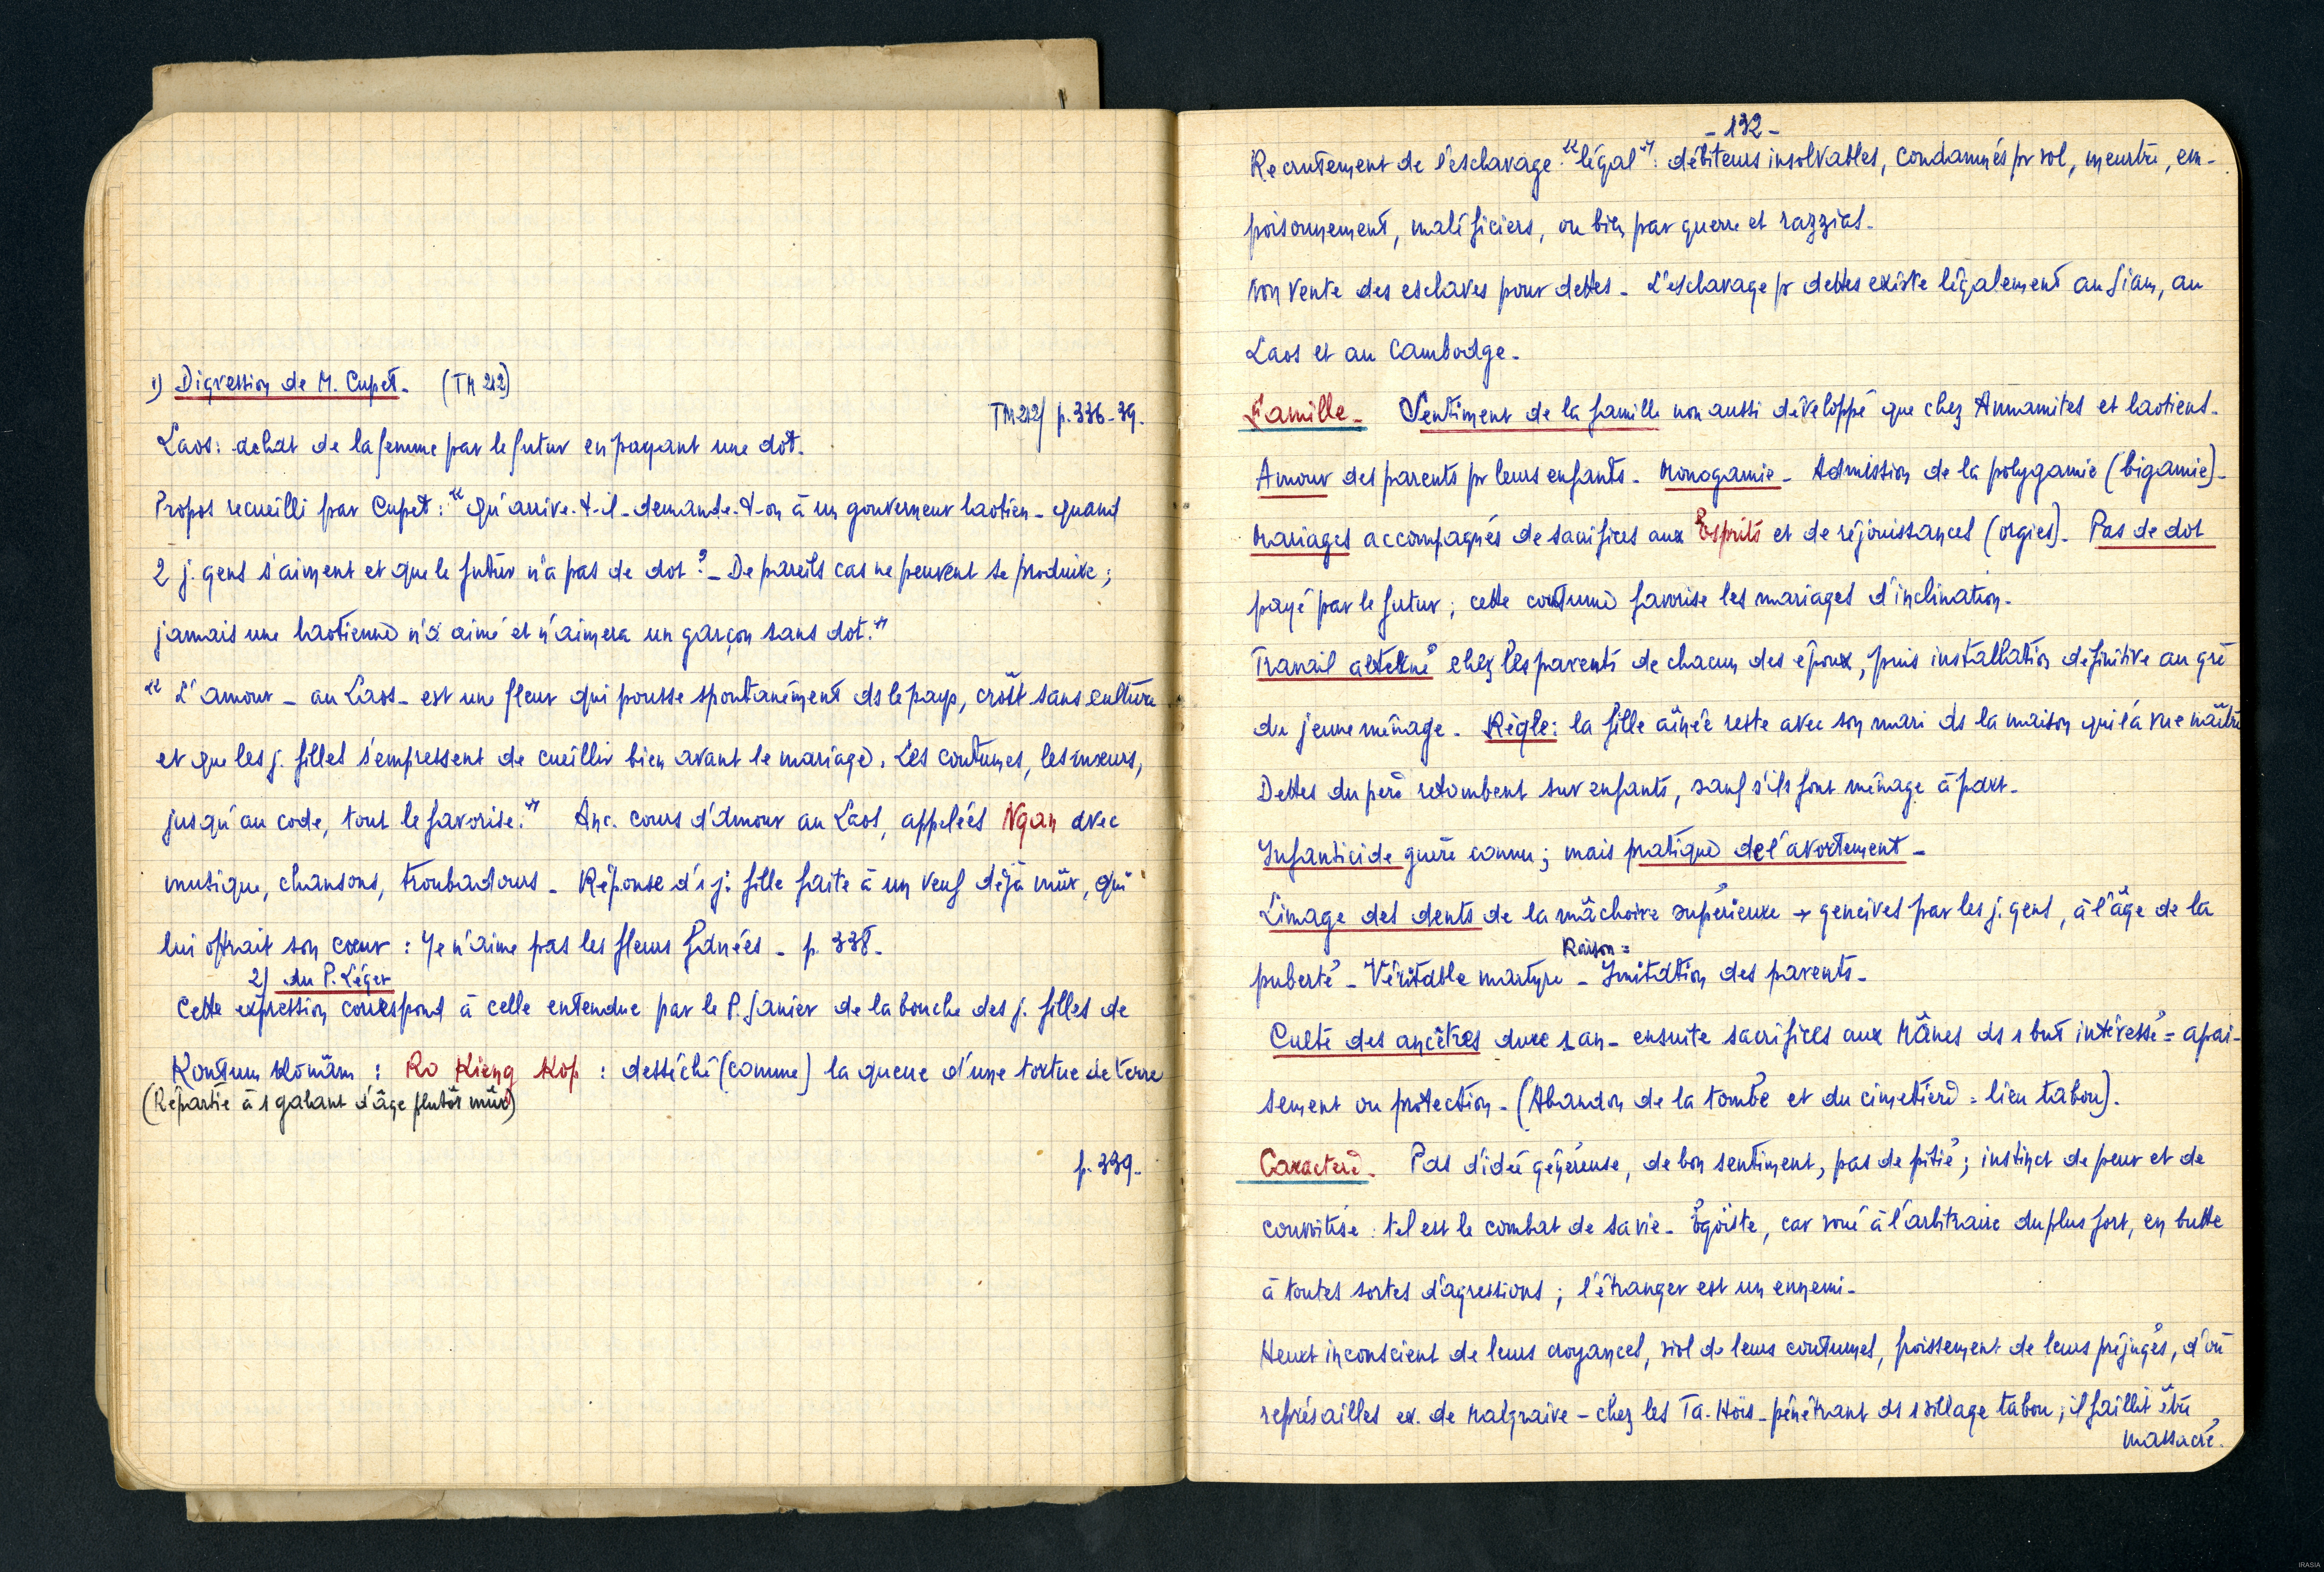 1) Digression de M. Cupet. (TM 212)
TM 212/ p. 336-39.
Laos: achat de la femme par le futur en payant une dot.
Propos recueilli par Cupet: "qu'arrive-t-il - demande-t-on à un gouverneur laotien - quand
2 j. gens s'aiment et que le futur n'a pas de dot? - De pareils cas ne peuvent se produire;
jamais une laotienne n'a aimé et n'aimera un garçon sans dot."
"L'amour - au Laos - est une fleur qui pousse spontanément ds le pays, croît sans culture
et que les j. filles s'empressent de cueillir bien avant le mariage. Les coutumes, les mœurs,
jusqu'au code, tout le favorise." Anc. cours d'Amour au Laos, appelées Ngan avec
musique, chansons, troubadours - Réponse d'1 j. fille faite à un veuf déjà mûr, qui
lui offrait son cœur: Je n'aime pas les fleurs fanées - p. 338.
2) du P. Léger
Cette expression correspond à celle entendue par le P. Janier de la bouche des j. filles de
Kontum Könäm: Ro Kieng Kop: desséché (comme) la queue d'une tortue de terre
(Répartie à 1 galant d'âge plutôt mûr)
p. 339.
- 132 -
Recrutement de l'esclavage "légal": débiteurs insolvables, condamnés pr vol, meurtre, em-
poisonnement, maléficiers, ou bien par guerre et razzias.
non vente des esclaves pour dettes - L'esclavage pr dettes existe légalement au Siam, au
Laos et au Cambodge.
Famille - Sentiment de la famille non aussi développé que chez Annamites et laotiens.
Amour des parents pr leurs enfants. Monogamie - Admission de la polygamie (bigamie) -
Mariages accompagnés de sacrifices aux Esprits et de réjouissances (orgies). Pas de dot
payé par le futur; cette coutume favorise les mariages d'inclination.
Travail alterné chez les parents de chacun des époux, puis installation définitive au gré
du jeune ménage - Règle: la fille aînée reste avec son mari ds la maison qui l'a vue naître
Dettes du père retombent sur enfants, sauf s'ils font ménage à part.
Infanticide guère connu; mais pratique de l'avortement -
Limage des dents de la mâchoire supérieure → gencives par les j. gens, à l'âge de la
Raison =
puberté - Véritable martyre - Imitation des parents.
Culte des ancêtres dure 1 an - ensuite sacrifices aux Mânes ds 1 but intéressé = apai-
sement ou protection - (Abandon de la tombe et du cimetière = lieu tabou).
Caractère. Pas d'idée généreuse, de bon sentiment, pas de pitié; instinct de peur et de
convoitise: tel est le combat de sa vie - Egoïste, car voué à l'arbitraire du plus fort, en butte
à toutes sortes d'agressions; l'étranger est un ennemi -
Heurt inconscient de leurs croyances, viol de leurs coutumes, froissement de leurs préjugés, d'où
représailles ex. de Malglaive - chez les Ta-Hoïs - pénétrant ds 1 village tabou; il faillit être
massacré.
IRASIA